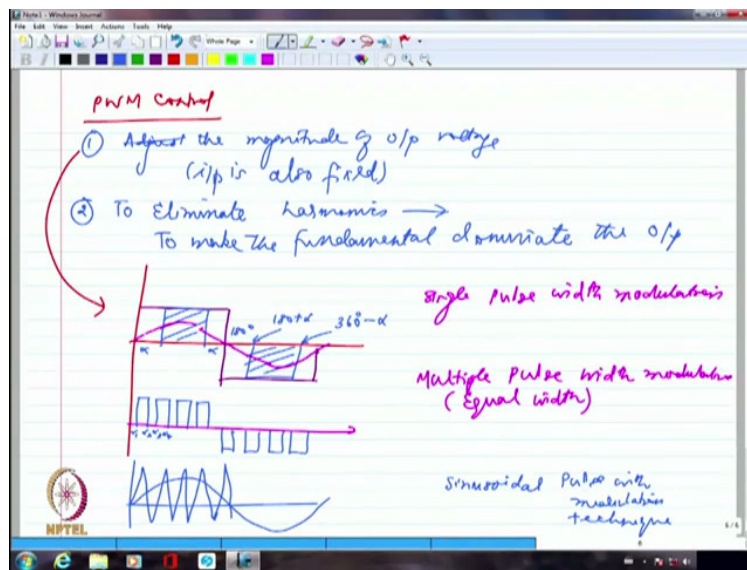 Note1 - Windows Journal
File Edit View Insert Actions Tools Help
Whole Page
B I
PWM Control
① Adjust the magnitude of o/p voltage
(i/p is also fixed)
② To Eliminate harmonics →
To make the fundamental dominate the o/p
α α 180° 180+α 360°-α
Single pulse width modulation
Multiple Pulse width modulation
(Equal width)
α₁ α₂ α₃ α₄
Sinusoidal Pulse with
modulation
technique
NPTEL
6/6
6